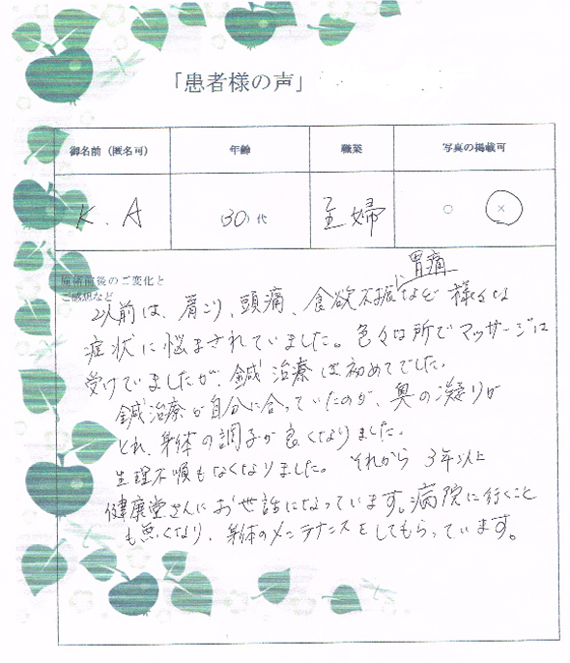 「患者様の声」
御名前（匿名可） 年齢 職業 写真の掲載可
K. A （30）代 主婦 ○ ×
施術前後のご変化と
ご感想など
胃痛
以前は、肩こり、頭痛、食欲不振など様々な
症状に悩まされていました。色々な所でマッサージは
受けていましたが、鍼治療は初めてでした。
鍼治療が自分に合っていたのか、奥の凝りが
とれ、身体の調子が良くなりました。
生理不順もなくなりました。それから3年以上
健康堂さんにお世話になっています。病院に行くこと
も無くなり、身体のメンテナンスをしてもらっています。